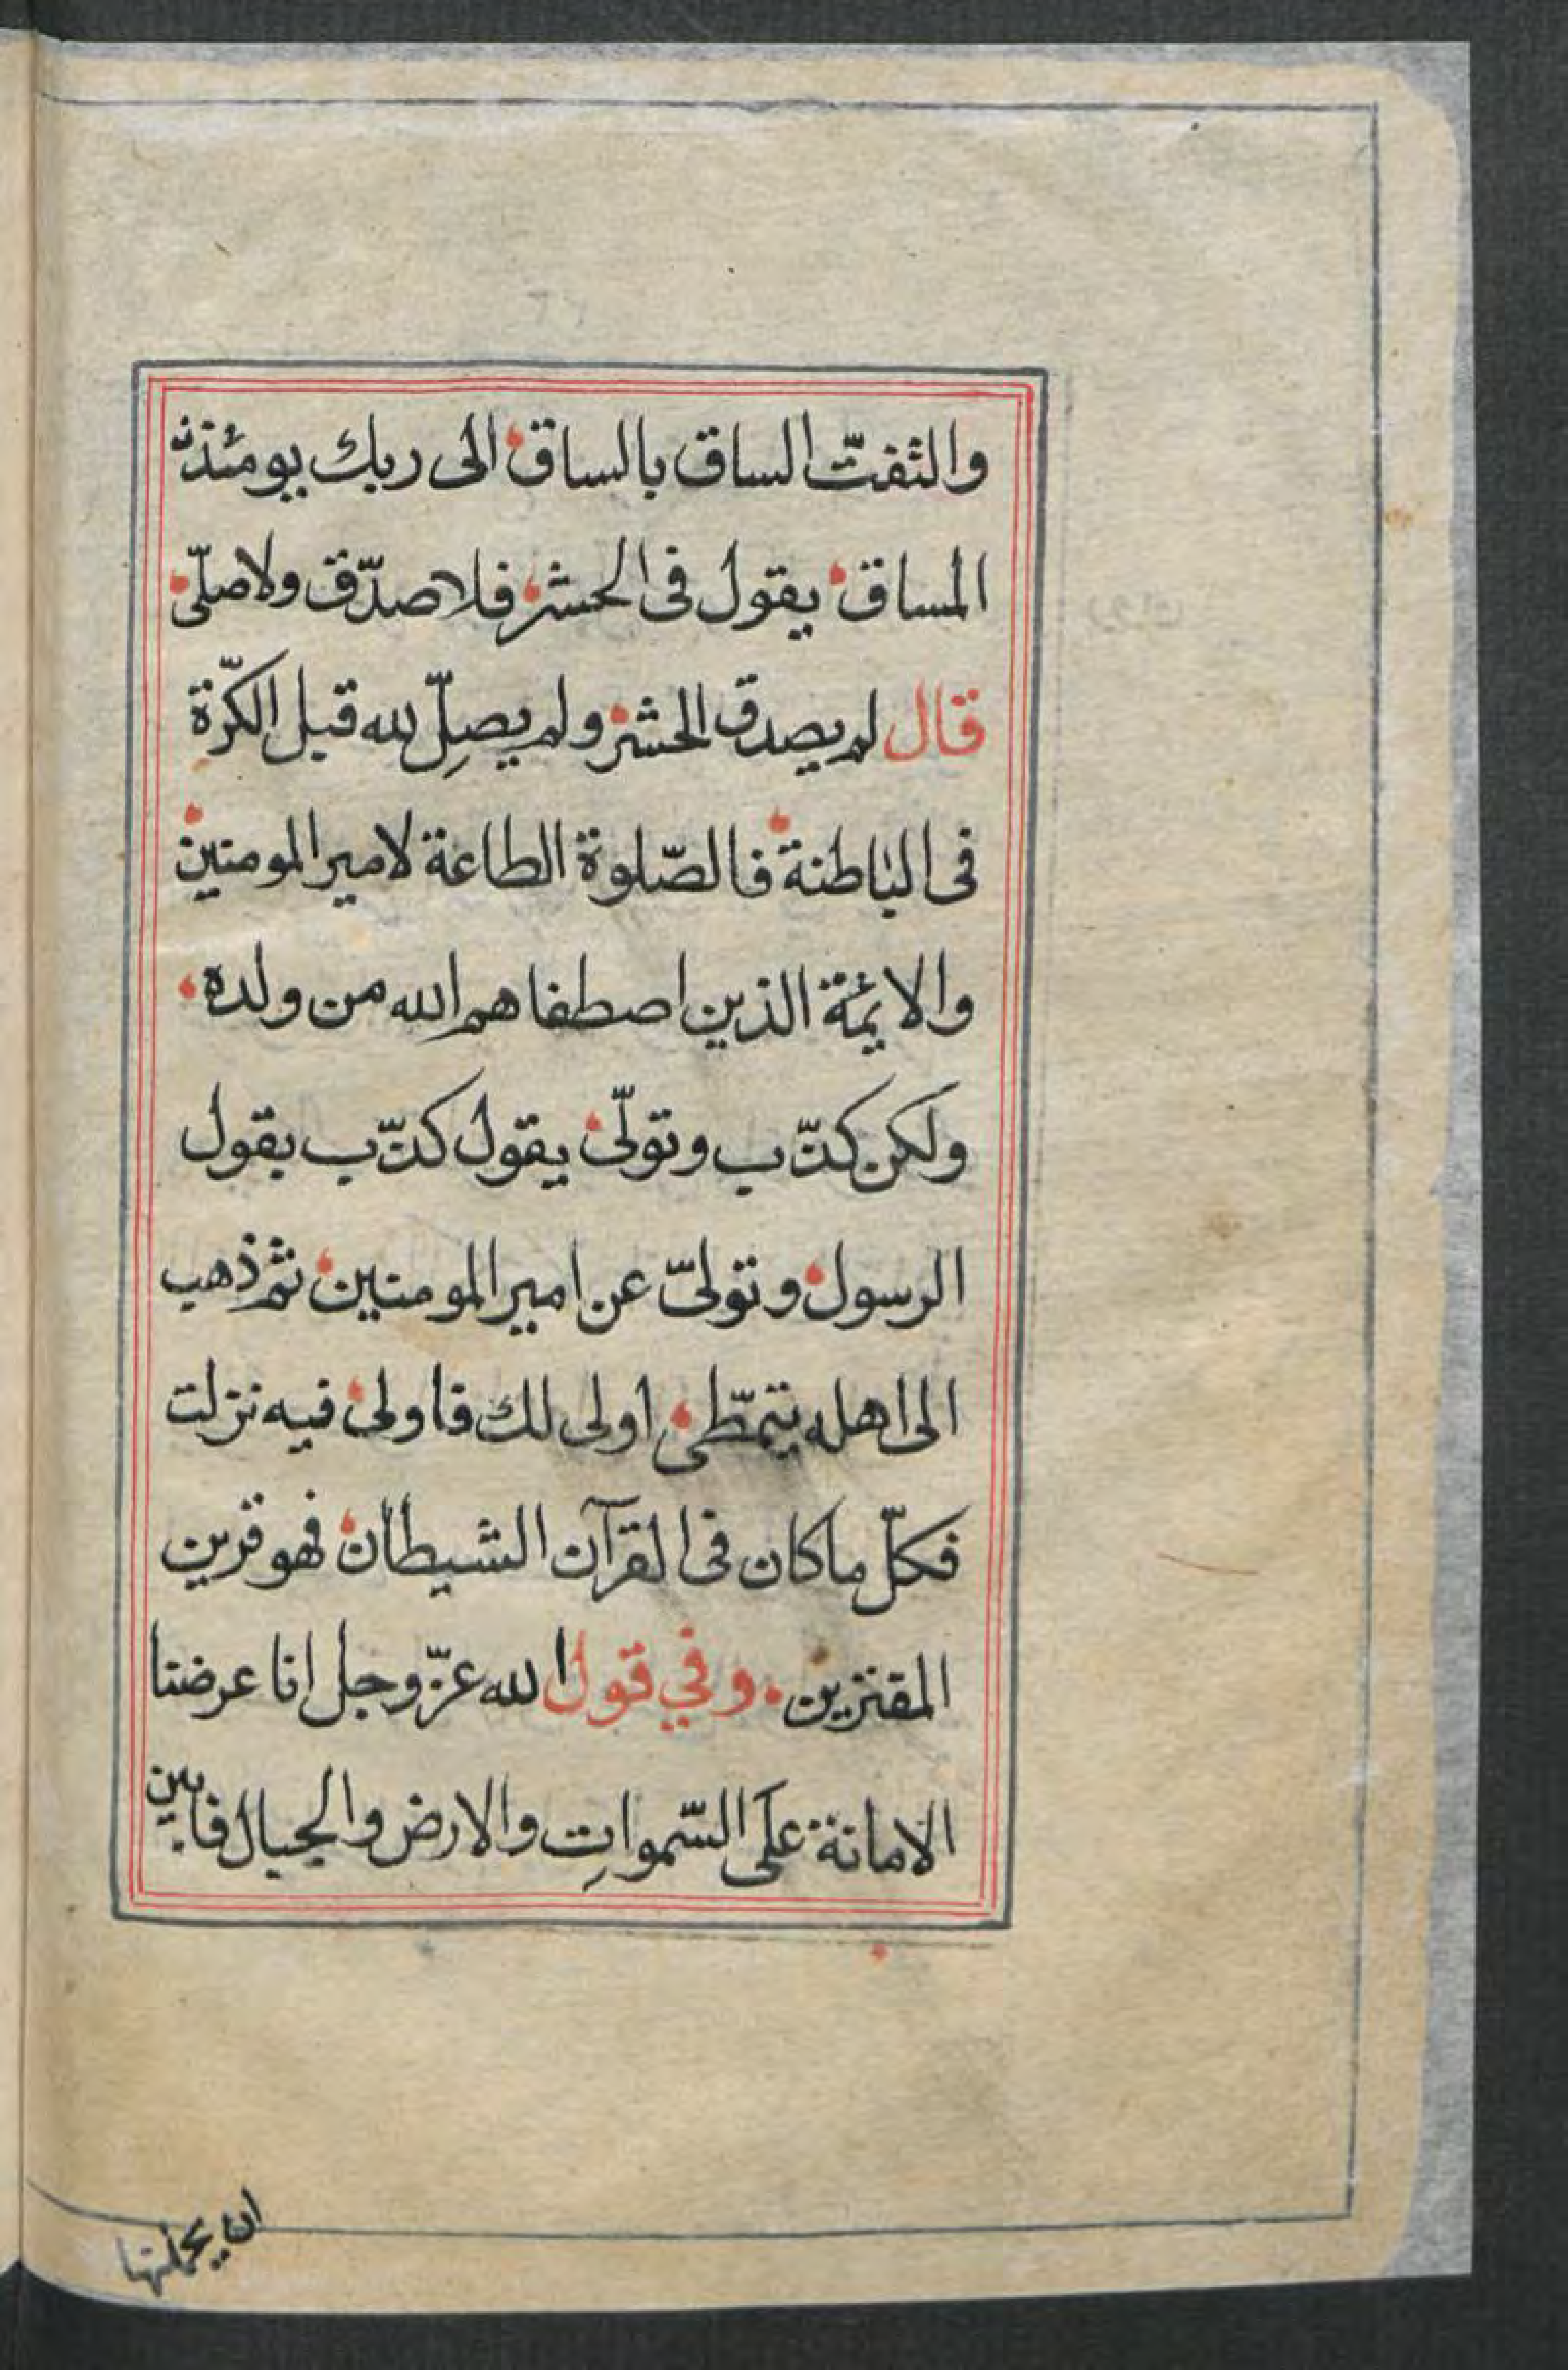 والتفتّ الساق بالساق الى ربك يومئذ
المساق يقول فى الحشر فلا صدّق ولا صلّى
قال لم يصدق الحشر ولم يصلِّ لله قبل الكرّة
فى الباطنة فالصّلوة الطاعة لامير المومنين
والائمة الذين اصطفاهم الله من ولده
ولكن كذّب وتولّى يقول كذّب بقول
الرسول وتولىّ عن امير المومنين ثم ذهب
الى اهله يتمطّى اولى لك فاولى فيه نزلت
فكلّ ما كان فى القرآن الشيطان فهو قرين
المقترين وفي قول الله عزّ وجل انا عرضنا
الامانة على السّمواتِ والارض والجبال فابين
ان يحملنها